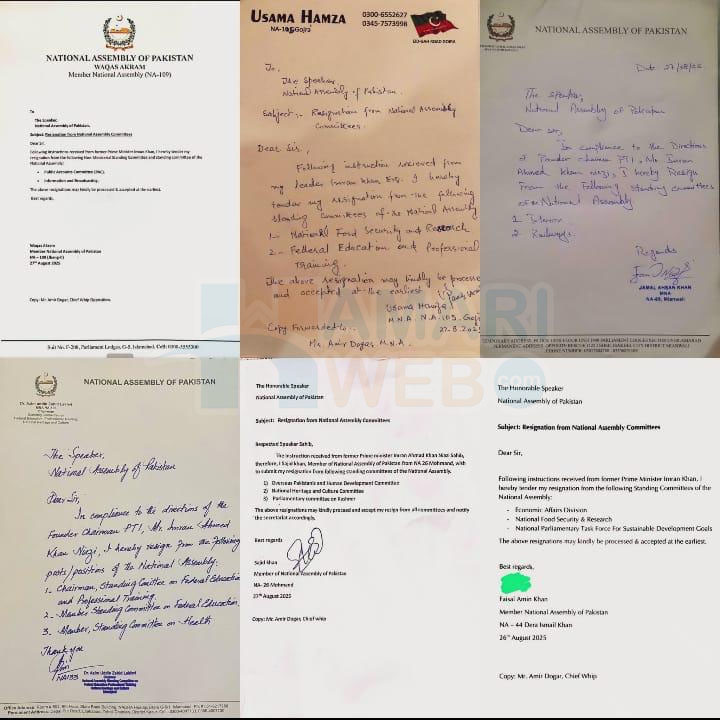 NATIONAL ASSEMBLY OF PAKISTAN
WAQAS AKRAM
Member National Assembly (NA-109)
To
The Speaker,
National Assembly of Pakistan.
Subject: Resignation from National Assembly Committees
Dear Sir,
Following instructions received from former Prime Minister Imran Khan, I hereby tender my
resignation from the following Non Ministerial Standing Committees and standing committee of the
National Assembly:
• Public Accounts Committee (PAC)
• Information and Broadcasting
The above resignations may kindly be processed & accepted at the earliest.
Best regards,
Waqas Akram
Member National Assembly of Pakistan
NA – 109
27th August 2025
Copy: Mr Amir Dogar, Chief Whip
USAMA HAMZA
NA-105 Gojra
0300-6552627
0345-7573998
To,
The Speaker,
National Assembly of Pakistan.
Subject:- Resignation from National Assembly
Committees.
Dear Sir,
Following instruction recieved from
my leader Imran Khan Esq. I hereby
tender my resignation from the following
Standing Committees of the National Assembly
1- National Food Security and Research
2- Federal Education and Professional
Training.
The above resignation may kindly be processe
and accepted at the earliest
Usama Hamza
M.N.A. N.A 105. Goj
27.8.202
Copy Forwarded to:-
Mr. Amir Dogar M.N.A.
NATIONAL ASSEMBLY OF PAKISTAN
The Speaker,
National Assembly of Pakistan
Dear Sir,
In compliance to the Directions
of Founder chairman PTI, Mr Imran
Ahmed Khan Niazi, I hereby Resign
From the Following standing committees
of the National Assembly
1.
2. Railways.
Regards
JAMAL AHSAN KHAN
MNA
NA-89, Mianwali
AMARI
WEB.com
NATIONAL ASSEMBLY OF PAKISTAN
The Speaker,
National Assembly of Pakistan
Dear Sir,
In compliance to the directions of the
Founder Chairman PTI, Mr. Imran Ahmed
Khan Niazi, I hereby resign from the following
posts/positions of the National Assembly.
1- Chairman, Standing Comittee on Federal Education
and Professional Training.
2- Member Standing Committee on Federal Education,
3- Member, Standing Committee on Health
Thank you
The Honorable Speaker
National Assembly of Pakistan
Subject: Resignation from National Assembly Committees
Respected Speaker Sahib,
The instruction received from former Prime minister Imran Ahmad Khan Niazi Sahib,
therefore, I Sajid khan, Member of National Assembly of Pakistan from NA 26 Mohmand, wish
to submit my resignation from following standing committees of the National Assembly.
1) Overseas Pakistanis and Human Development Committee
2) National Heritage and Culture Committee
3) Parliamentary committee on Kashmir
The above resignations may kindly proceed and accept my resign from all committees and notify
the Secretariat accordingly.
Best regards
Sajid khan
Member of National Assembly of Pakistan
NA- 26 Mohmand
27th August 2025
Copy: Mr. Amir Dogar, Chief whip
The Honorable Speaker
National Assembly of Pakistan
Subject: Resignation from National Assembly Committees
Dear Sir,
Following instructions received from former Prime Minister Imran Khan, I
hereby tender my resignation from the following Standing Committees of the
National Assembly:
- Economic Affairs Division
- National Food Security & Research
- National Parliamentary Task Force For Sustainable Development Goals
The above resignations may kindly be processed & accepted at the earliest.
Best regards,
Faisal Amin Khan
Member National Assembly of Pakistan
NA – 44 Dera Ismail Khan
26th August 2025
Copy: Mr. Amir Dogar, Chief Whip